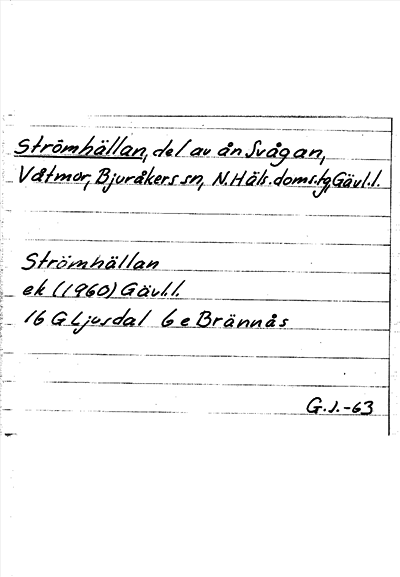 Strömhällan, del av ån Svågan,
Våtmor, Bjuråkers sn, N.Häls.doms.tg, Gävl.l.
Strömhällan
ek (1960) Gävl.l.
16 G Ljusdal 6 e Brännås
G.J.-63